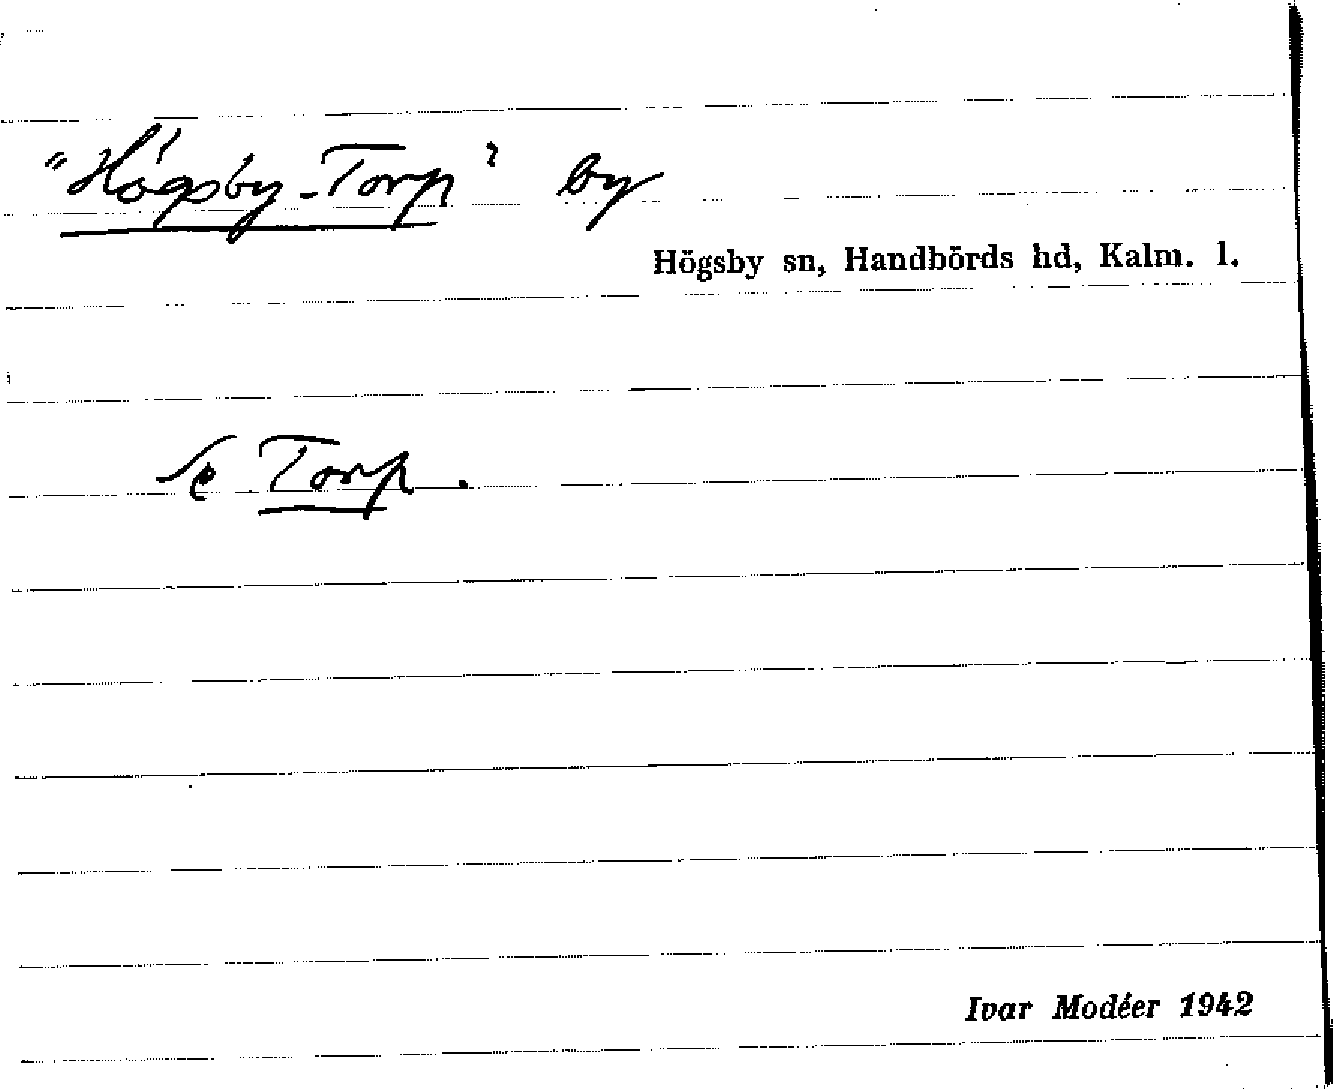 "Högsby-Torp" by
Högsby sn, Handbörds hd, Kalm. l.
Se Torp.
Ivar Modéer 1942